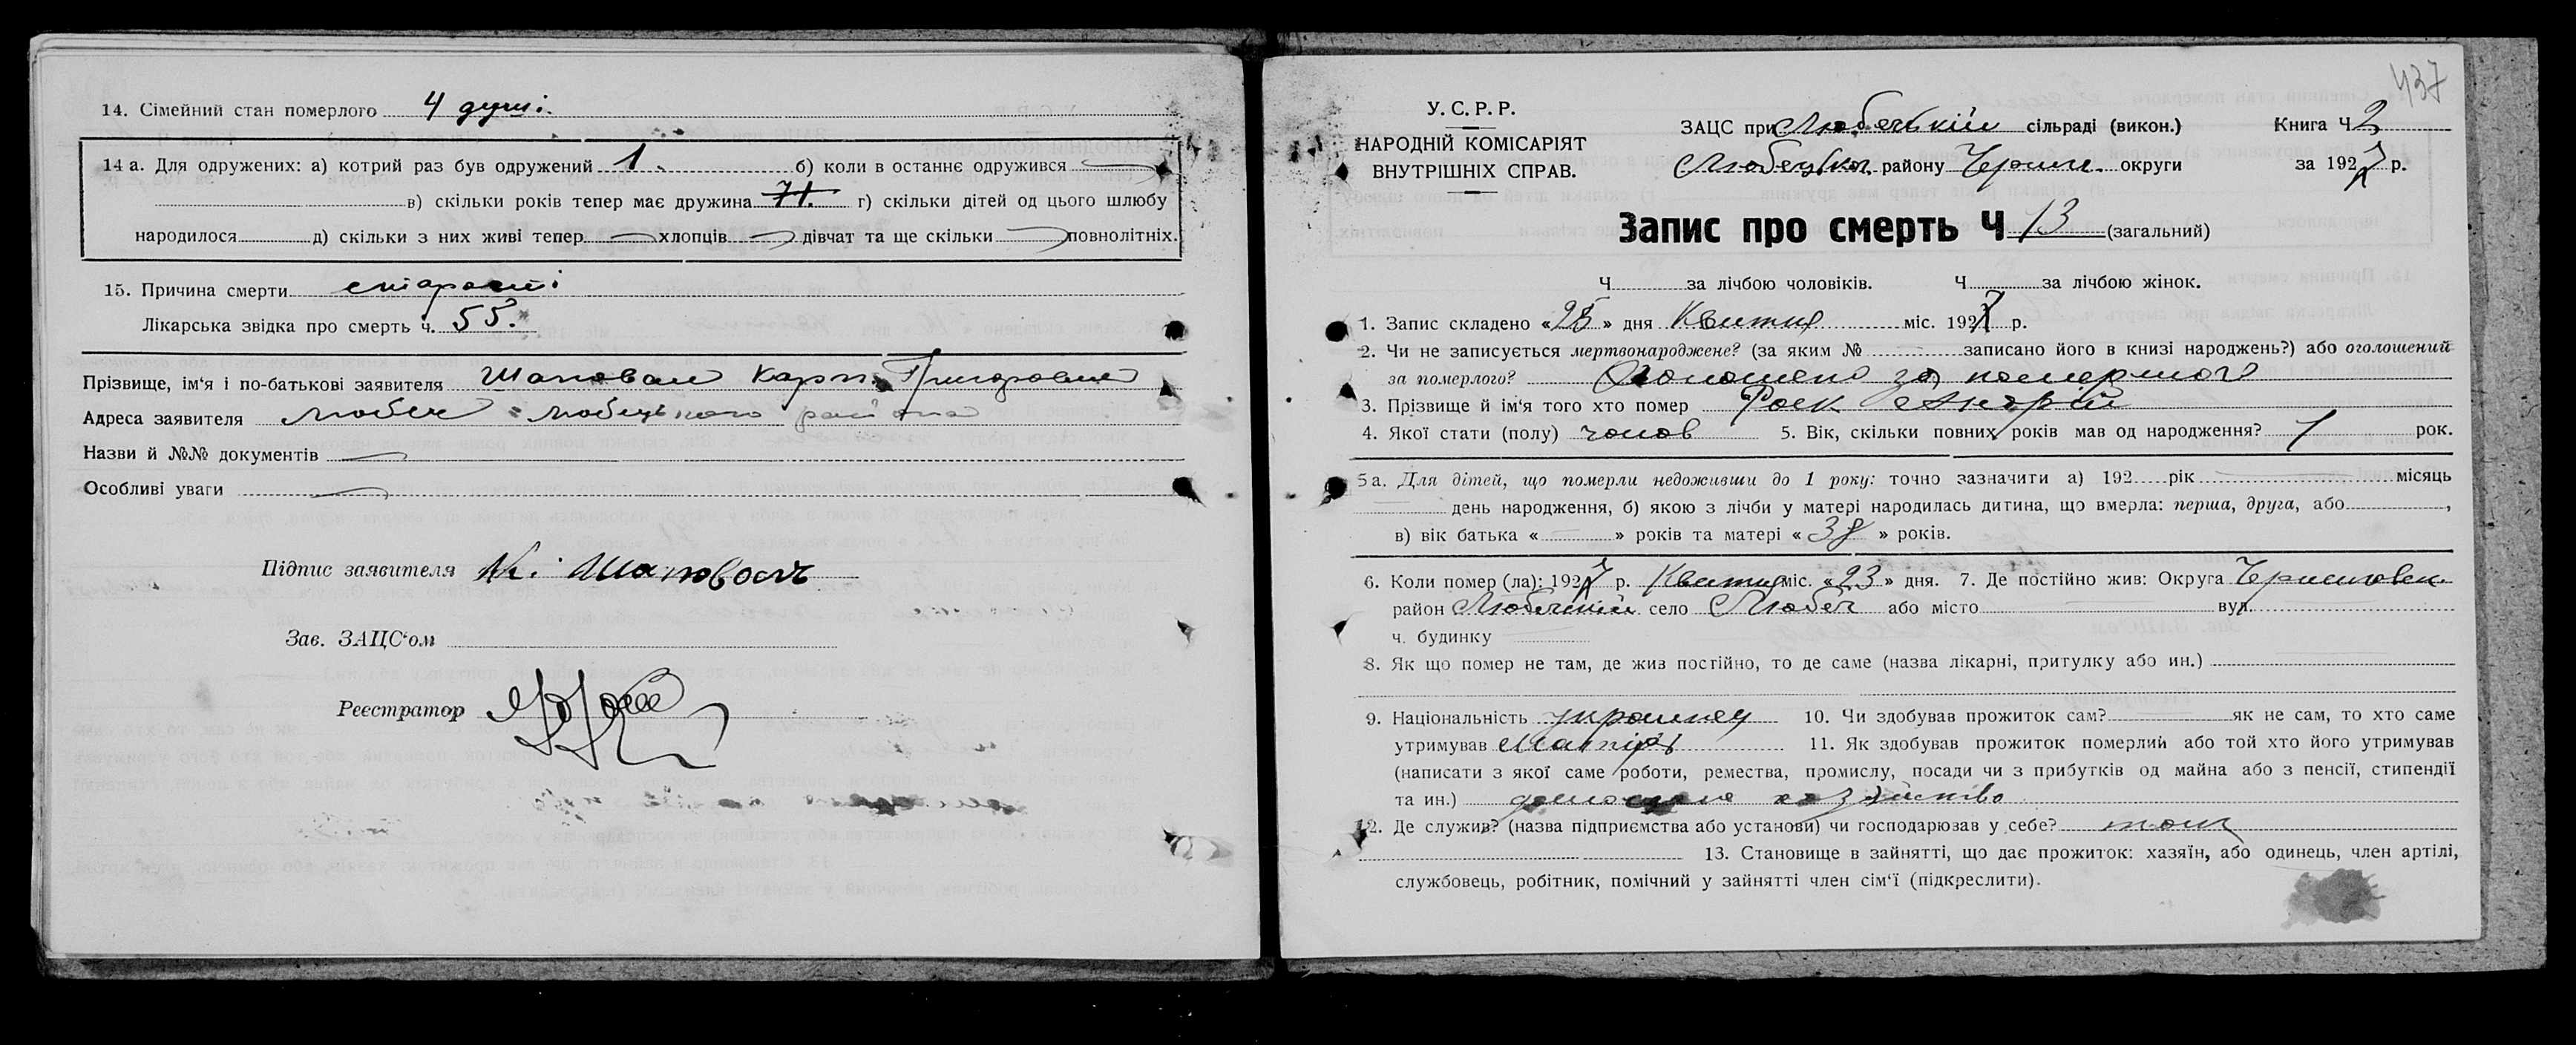 14. Сімейний стан померлого 4 душі.
14 а. Для одружених: а) котрий раз був одружений 1. б) коли в останнє одружився
в) скільки років тепер має дружина 71. г) скільки дітей од цього шлюбу
народилося д) скільки з них живі тепер хлопців дівчат та ще скільки повнолітніх.
15. Причина смерти старости
Лікарська звідка про смерть ч. 55.
Прізвище, ім'я і по-батькові заявителя Шаповал Карп Григорович
Адреса заявителя Любеч Любецького района
Назви й №№ документів
Особливі уваги
Підпис заявителя К. Шаповалъ
Зав. ЗАЦС'ом
Реєстратор
437
У. С. Р. Р.
НАРОДНІЙ КОМІСАРІЯТ
ВНУТРІШНІХ СПРАВ.
ЗАЦС при Любецькій сільраді (викон.) Книга Ч 2
Любецьког. району Черниг. округи за 1927 р.
Запис про смерть Ч 13 (загальний)
Ч за лічбою чоловіків. Ч за лічбою жінок.
1. Запис складено «25» дня Квитня міс. 1927 р.
2. Чи не записується мертвонароджене? (за яким № записано його в книзі народжень?) або оголошений
за померлого? Оголошено за померлого
3. Прізвище й ім'я того хто помер Роек Андрій
4. Якої стати (полу) чолов 5. Вік, скільки повних років мав од народження? 1 рок.
5 а. Для дітей, що померли недоживши до 1 року: точно зазначити а) 192 рік місяць
день народження, б) якою з лічби у матері народилась дитина, що вмерла: перша, друга, або ,
в) вік батька « » років та матері «38» років.
6. Коли помер (ла): 1927 р. Квитня міс. «23» дня. 7. Де постійно жив: Округа Черниговск.
район Любецкий село Любеч або місто вул.
ч. будинку
8. Як що помер не там, де жив постійно, то де саме (назва лікарні, притулку або ин.)
9. Національність украинец 10. Чи здобував прожиток сам? як не сам, то хто саме
утримував Матирь 11. Як здобував прожиток померлий або той хто його утримував
(написати з якої саме роботи, ремества, промислу, посади чи з прибутків од майна або з пенсії, стипендії
та ин.) домашне хозяйство
12. Де служив? (назва підприємства або установи) чи господарював у себе?
13. Становище в зайнятті, що дає прожиток: хазяїн, або одинець, член артілі,
службовець, робітник, помічний у зайнятті член сім'ї (підкреслити).